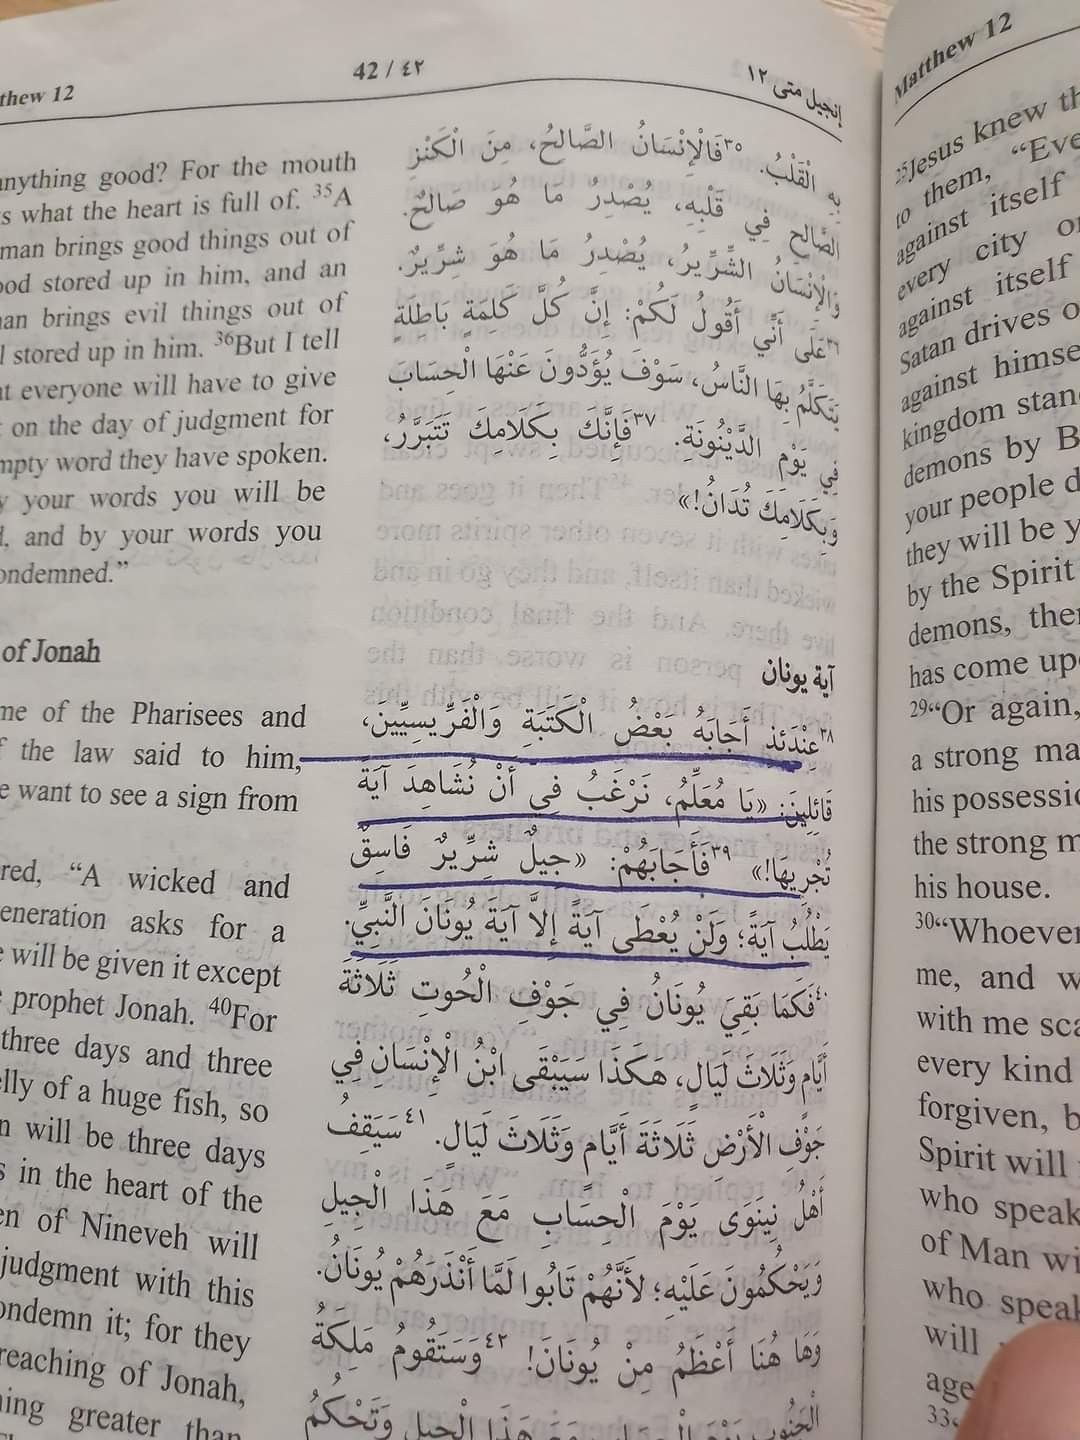 thew 12
42 / ٤٢
إنجيل متى ١٢
anything good? For the mouth
s what the heart is full of. ³⁵A
man brings good things out of
ood stored up in him, and an
an brings evil things out of
l stored up in him. ³⁶But I tell
at everyone will have to give
t on the day of judgment for
mpty word they have spoken.
y your words you will be
d, and by your words you
ondemned.”
of Jonah
me of the Pharisees and
f the law said to him,
e want to see a sign from
red, “A wicked and
eneration asks for a
e will be given it except
e prophet Jonah. ⁴⁰For
three days and three
elly of a huge fish, so
n will be three days
s in the heart of the
en of Nineveh will
judgment with this
ondemn it; for they
reaching of Jonah,
hing greater than
بِهِ الْقَلْبُ. ٣٥فَالْإِنْسَانُ الصَّالِحُ، مِنَ الْكَنْزِ
الصَّالِحِ فِي قَلْبِهِ، يُصْدِرُ مَا هُوَ صَالِحٌ.
وَالْإِنْسَانُ الشِّرِّيرُ، يُصْدِرُ مَا هُوَ شِرِّيرٌ.
٣٦عَلَى أَنِّي أَقُولُ لَكُمْ: إِنَّ كُلَّ كَلِمَةٍ بَاطِلَةٍ
يَتَكَلَّمُ بِهَا النَّاسُ، سَوْفَ يُؤَدُّونَ عَنْهَا الْحِسَابَ
فِي يَوْمِ الدَّيْنُونَةِ. ٣٧فَإِنَّكَ بِكَلَامِكَ تَتَبَرَّرُ،
وَبِكَلَامِكَ تُدَانُ!»
آية يونان
٣٨عِنْدَئِذٍ أَجَابَهُ بَعْضُ الْكَتَبَةِ وَالْفَرِّيسِيِّينَ،
قَائِلِينَ: «يَا مُعَلِّمُ، نَرْغَبُ فِي أَنْ نُشَاهِدَ آيَةً
تُجْرِيهَا!» ٣٩فَأَجَابَهُمْ: «جِيلٌ شِرِّيرٌ فَاسِقٌ
يَطْلُبُ آيَةً؛ وَلَنْ يُعْطَى آيَةً إِلاَّ آيَةَ يُونَانَ النَّبِيِّ.
٤٠فَكَمَا بَقِيَ يُونَانُ فِي جَوْفِ الْحُوتِ ثَلَاثَةَ
أَيَّامٍ وَثَلَاثَ لَيَالٍ، هَكَذَا سَيَبْقَى ابْنُ الْإِنْسَانِ فِي
جَوْفِ الْأَرْضِ ثَلَاثَةَ أَيَّامٍ وَثَلَاثَ لَيَالٍ. ٤١سَيَقِفُ
أَهْلُ نِينَوَى يَوْمَ الْحِسَابِ مَعَ هَذَا الْجِيلِ
وَيَحْكُمُونَ عَلَيْهِ؛ لأَنَّهُمْ تَابُوا لَمَّا أَنْذَرَهُمْ يُونَانُ.
وَهَا هُنَا أَعْظَمُ مِنْ يُونَانَ! ٤٢وَسَتَقُومُ مَلِكَةُ
الْجَنُوبِ يَوْمَ الْحِسَابِ مَعَ هَذَا الْجِيلِ وَتَحْكُمُ
Matthew 12
²⁵Jesus knew th
to them, “Eve
against itself
every city or
against itself
Satan drives o
against himse
kingdom stan
demons by B
your people d
they will be y
by the Spirit
demons, then
has come upo
²⁹“Or again,
a strong ma
his possessio
the strong m
his house.
³⁰“Whoever
me, and w
with me sca
every kind
forgiven, b
Spirit will
who speak
of Man wi
who speak
will
age
³³“